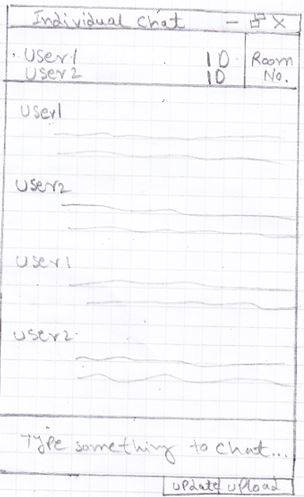 Individual Chat
User1 10 Room
User2 10 No.
User1
User2
User1
User2
Type something to chat...
update upload